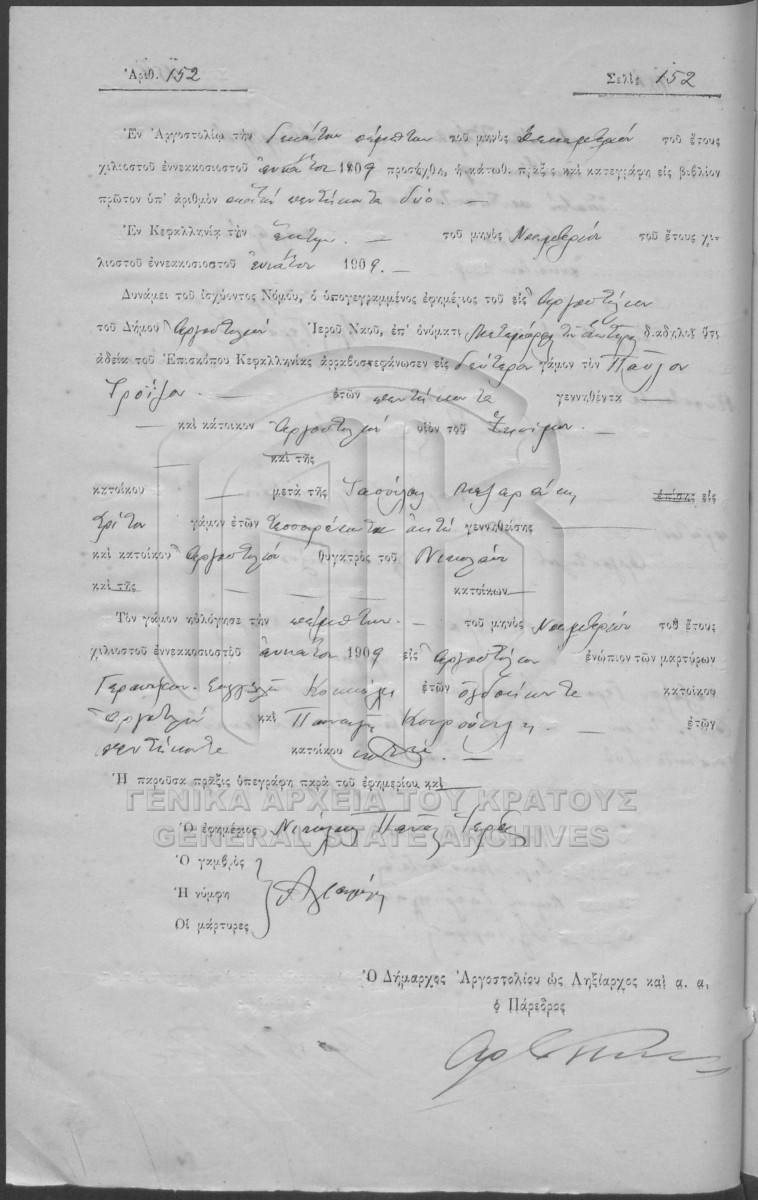 Ἀριθ. 152
Σελὶς 152
Ἐν Ἀργοστολίῳ τὴν δεκάτην πέμπτην τοῦ μηνὸς Δεκεμβρίου τοῦ ἔτους
χιλιοστοῦ ἐννεακοσιοστοῦ ἐννάτου 1909 προσήχθη, ἡ κάτωθι πρᾶξις καὶ κατεγράφη εἰς βιβλίον
πρῶτον ὑπ' ἀριθμὸν ἑκατὸν πεντήκοντα δύο. —
Ἐν Κεφαλληνίᾳ τὴν ἕκτην. — τοῦ μηνὸς Νοεμβρίου τοῦ ἔτους χι-
λιοστοῦ ἐννεακοσιοστοῦ ἐννάτου 1909. —
Δυνάμει τοῦ ἰσχύοντος Νόμου, ὁ ὑπογεγραμμένος ἐφημέριος τοῦ εἰς Ἀργοστόλιον
τοῦ Δήμου Ἀργοστολίου Ἱεροῦ Ναοῦ, ἐπ' ὀνόματι τοῦ Σωτῆρος διαδηλοῖ ὅτι
ἀδείᾳ τοῦ Ἐπισκόπου Κεφαλληνίας ἀρραβοστεφάνωσεν εἰς δεύτερον γάμον τὸν Παῦλον
— ἐτῶν πεντήκοντα γεννηθέντα —
— καὶ κάτοικον Ἀργοστολίου υἱὸν τοῦ —
καὶ τῆς
κατοίκου — μετὰ τῆς ἐπίσης εἰς
τρίτον γάμον ἐτῶν τεσσαράκοντα ὀκτὼ γεννηθείσης —
καὶ κατοίκου Ἀργοστολίου θυγατρὸς τοῦ Νικολάου
καὶ τῆς — κατοίκων —
Τὸν γάμον ηὐλόγησε τὴν πέμπτην. — τοῦ μηνὸς Νοεμβρίου τοῦ ἔτους
χιλιοστοῦ ἐννεακοσιοστοῦ ἐννάτου 1909 εἰς Ἀργοστόλιον ἐνώπιον τῶν μαρτύρων
Γερασίμου ἐτῶν ὀγδοήκοντα κατοίκου
Ἀργοστολίου καὶ Παναγῆ — ἐτῶν
πεντήκοντα κατοίκου —
Ἡ παροῦσα πρᾶξις ὑπεγράφη παρὰ τοῦ ἐφημερίου καὶ
ΓΕΝΙΚΑ ΑΡΧΕΙΑ ΤΟΥ ΚΡΑΤΟΥΣ
Ὁ ἐφημέριος Νικόλαος
GENERAL STATE ARCHIVES
Ὁ γαμβρὸς
Ἡ νύμφη
Οἱ μάρτυρες
Ὁ Δήμαρχος Ἀργοστολίου ὡς Ληξίαρχος καὶ α. α.
ὁ Πάρεδρος